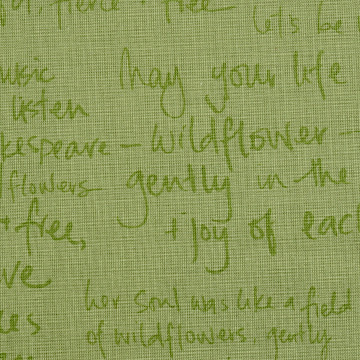 fierce + free
let's be
music   May your life
listen
kespeare - wildflower -
flowers   gently in the
+ free,   + joy of each
ve
her soul was like a field
es
of wildflowers, gently